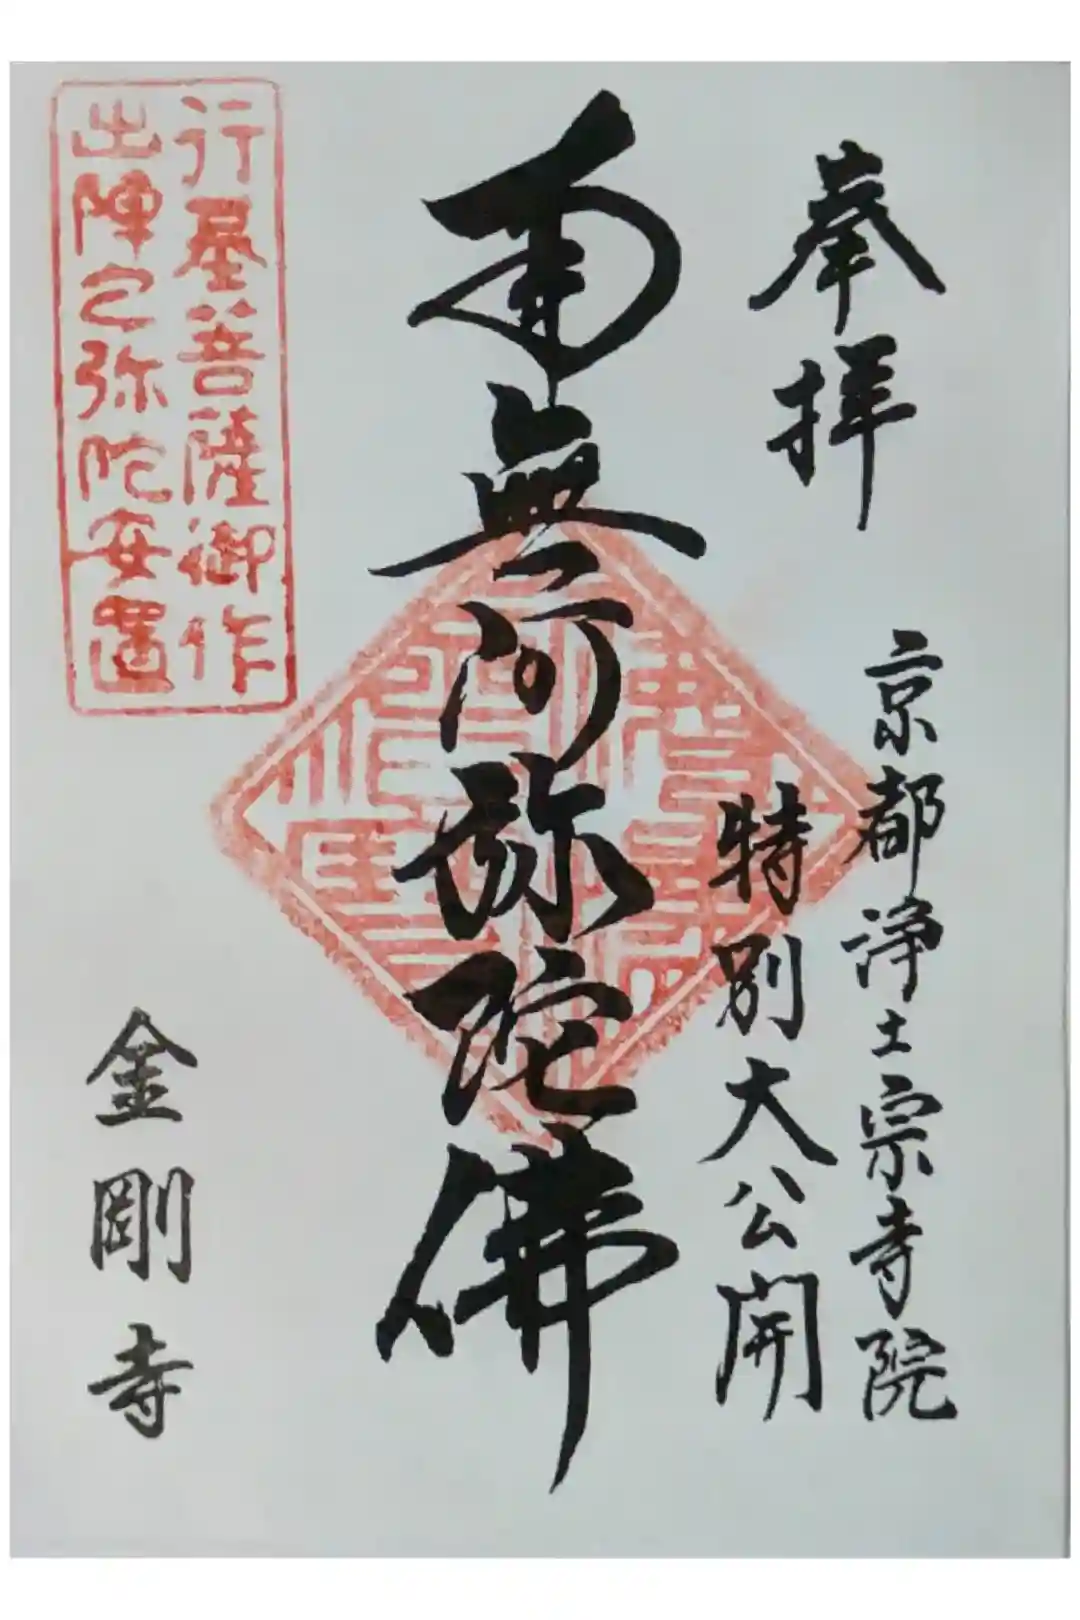 奉拝
京都浄土宗寺院
特別大公開
南無阿弥陀佛
行基菩薩御作
出陣之弥陀安置
金剛寺